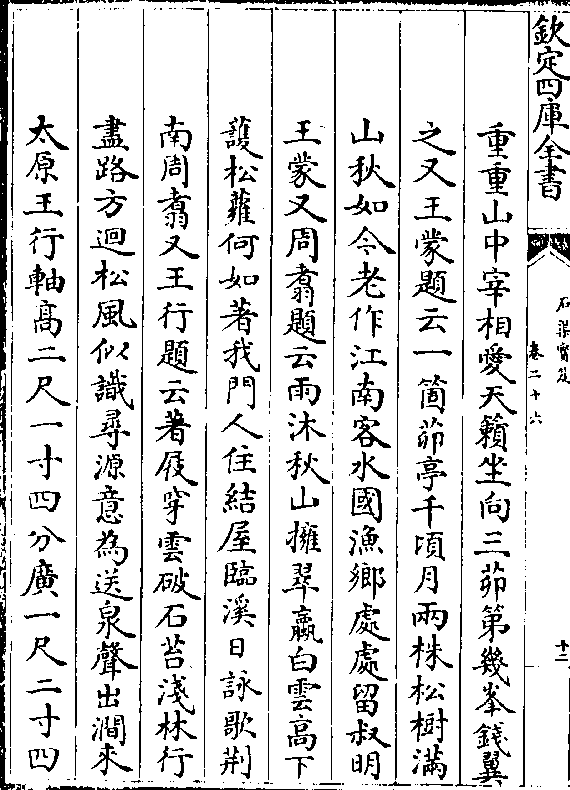 欽定四庫全書
石渠寶笈
卷二十六
十三
重重山中宰相愛天籟坐向三茆第幾峯錢翼
之又王蒙題云一箇茆亭千頃月兩株松樹滿
山秋如今老作江南客水國漁鄉處處留叔明
王蒙又周翥題云雨沐秋山擁翠蠃白雲高下
護松蘿何如著我門人住結屋臨溪日詠歌荆
南周翥又王行題云著屐穿雲破石苔淺林行
盡路方迴松風似識尋源意為送泉聲出澗來
太原王行軸高二尺一寸四分廣一尺二寸四